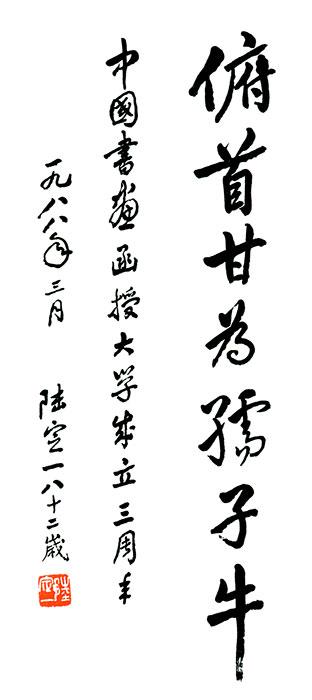 俯首甘为孺子牛
中國書画函授大学成立三周年
一九八八年三月 陆定一八十二歲
陆定一